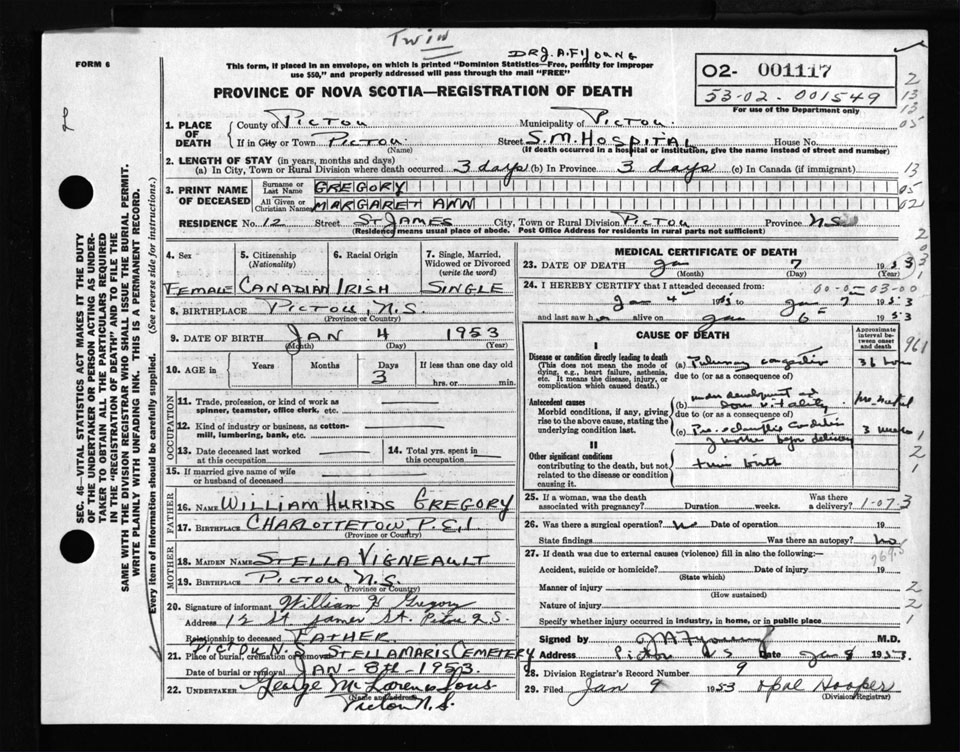 Twin
DR J. A. F. YOUNG
FORM 6
This form, if placed in an envelope, on which is printed "Dominion Statistics—Free, penalty for improper
use $50," and properly addressed will pass through the mail "FREE"
02- 001117
53-02. 001549
For use of the Department only
PROVINCE OF NOVA SCOTIA—REGISTRATION OF DEATH
1. PLACE OF DEATH { County of PICTOU Municipality of PICTOU.
If in City or Town PICTOU (Name) Street S.M. HOSPITAL House No.
(If death occurred in a hospital or institution, give the name instead of street and number)
2. LENGTH OF STAY (in years, months and days)
(a) In City, Town or Rural Division where death occurred 3 days (b) In Province 3 days (c) In Canada (if immigrant)
3. PRINT NAME OF DECEASED { Surname or Last Name GREGORY
All Given or Christian Names MARGARET ANN
RESIDENCE No. 12 Street ST JAMES City, Town or Rural Division PICTOU Province N.S.
(Residence means usual place of abode. Post Office Address for residents in rural parts not sufficient)
4. Sex FEMALE
5. Citizenship (Nationality) CANADIAN
6. Racial Origin IRISH
7. Single, Married, Widowed or Divorced (write the word) SINGLE
8. BIRTHPLACE PICTOU, N.S.
(Province or Country)
9. DATE OF BIRTH JAN 4 1953
(Month) (Day) (Year)
10. AGE in { Years Months Days 3 If less than one day old
hrs. or min.
OCCUPATION
11. Trade, profession, or kind of work as
spinner, teamster, office clerk, etc.
12. Kind of industry or business, as cotton-
mill, lumbering, bank, etc.
13. Date deceased last worked at this occupation
14. Total yrs. spent in this occupation
15. If married give name of wife
or husband of deceased
FATHER
16. NAME WILLIAM GREGORY
17. BIRTHPLACE CHARLOTTETOW, P.E.I.
(Province or Country)
MOTHER
18. MAIDEN NAME STELLA VIGNEAULT
19. BIRTHPLACE PICTOU, N.S.
(Province or Country)
20. Signature of informant William Gregory
Address 12 St. James St. Pictou N.S.
Relationship to deceased FATHER.
PICTOU N.S. STELLAMARIS CEMETERY
21. Place of burial, cremation or removal
Date of burial or removal JAN-8th-1953.
22. UNDERTAKER George McLaren & Sons
(Name and address)
Pictou N.S.
MEDICAL CERTIFICATE OF DEATH
23. DATE OF DEATH Jan 7 1953
(Month) (Day) (Year)
24. I HEREBY CERTIFY that I attended deceased from:
Jan 4 1953 to Jan 7 1953
and last saw h alive on Jan 6 1953
CAUSE OF DEATH
Approximate interval between onset and death
I
Disease or condition directly leading to death
(This does not mean the mode of dying, e.g., heart failure, asthenia, etc. It means the disease, injury, or complication which caused death.)
(a) Pulmonary congestion 36 hours
due to (or as a consequence of)
Antecedent causes
Morbid conditions, if any, giving rise to the above cause, stating the underlying condition last.
(b) under development and low vitality
due to (or as a consequence of)
(c) Pre-eclamptic condition 3 weeks
of mother before delivery
II
Other significant conditions
contributing to the death, but not related to the disease or condition causing it.
twin birth
25. If a woman, was the death associated with pregnancy? Duration weeks. Was there a delivery? 1-07-3
26. Was there a surgical operation? No Date of operation 19
State findings Was there an autopsy? No
27. If death was due to external causes (violence) fill in also the following:—
Accident, suicide or homicide? Date of injury 19
(State which)
Manner of injury
(How sustained)
Nature of injury
Specify whether injury occurred in industry, in home, or in public place
Signed by J A F Young M.D.
Address Pictou N S Date Jan 8 1953.
28. Division Registrar's Record Number 9
29. Filed Jan 9 1953 Opal Hooper
(Division Registrar)
SEC. 46—VITAL STATISTICS ACT MAKES IT THE DUTY
OF THE UNDERTAKER OR PERSON ACTING AS UNDER-
TAKER TO OBTAIN ALL THE PARTICULARS REQUIRED
IN THE "REGISTRATION OF DEATH" AND TO FILE THE
SAME WITH THE DIVISION REGISTRAR WHO SHALL ISSUE THE BURIAL PERMIT.
WRITE PLAINLY WITH UNFADING INK. THIS IS A PERMANENT RECORD.
Every item of information should be carefully supplied. (See reverse side for instructions.)